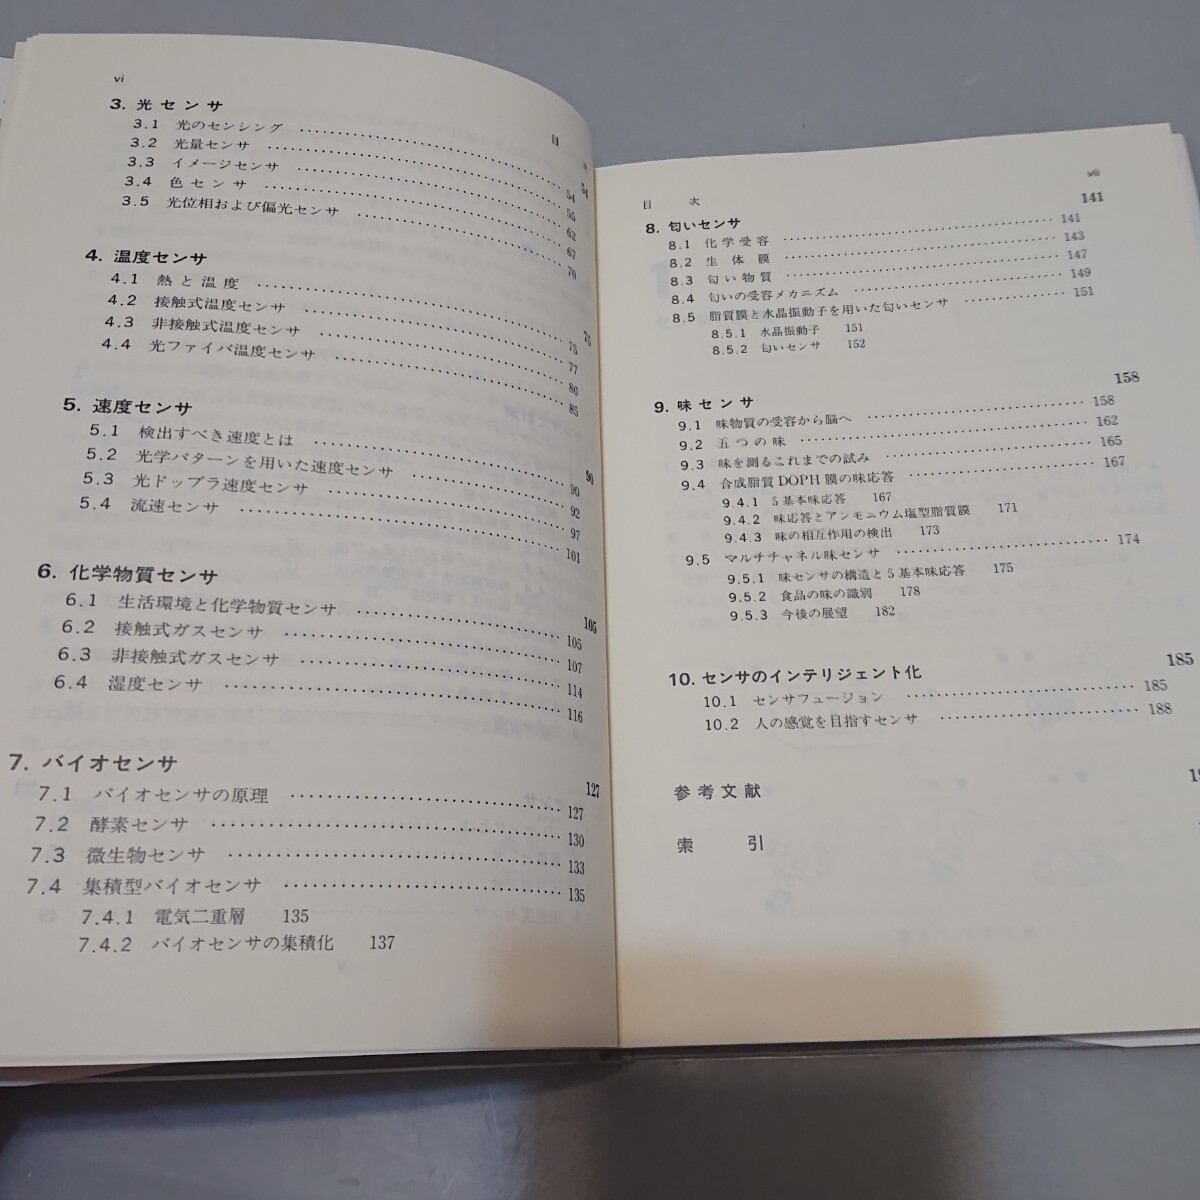 vi
目 次
3. 光センサ 54
3.1 光のセンシング 54
3.2 光量センサ 55
3.3 イメージセンサ 62
3.4 色センサ 67
3.5 光位相および偏光センサ 70
4. 温度センサ 75
4.1 熱と温度 75
4.2 接触式温度センサ 77
4.3 非接触式温度センサ 80
4.4 光ファイバ温度センサ 85
5. 速度センサ 90
5.1 検出すべき速度とは 90
5.2 光学パターンを用いた速度センサ 92
5.3 光ドップラ速度センサ 97
5.4 流速センサ 101
6. 化学物質センサ 105
6.1 生活環境と化学物質センサ 105
6.2 接触式ガスセンサ 107
6.3 非接触式ガスセンサ 114
6.4 湿度センサ 116
7. バイオセンサ 127
7.1 バイオセンサの原理 127
7.2 酵素センサ 130
7.3 微生物センサ 133
7.4 集積型バイオセンサ 135
7.4.1 電気二重層 135
7.4.2 バイオセンサの集積化 137
目 次
vii
8. 匂いセンサ 141
8.1 化学受容 141
8.2 生体膜 143
8.3 匂い物質 147
8.4 匂いの受容メカニズム 149
8.5 脂質膜と水晶振動子を用いた匂いセンサ 151
8.5.1 水晶振動子 151
8.5.2 匂いセンサ 152
9. 味センサ 158
9.1 味物質の受容から脳へ 158
9.2 五つの味 162
9.3 味を測るこれまでの試み 165
9.4 合成脂質DOPH膜の味応答 167
9.4.1 5基本味応答 167
9.4.2 味応答とアンモニウム塩型脂質膜 171
9.4.3 味の相互作用の検出 173
9.5 マルチチャネル味センサ 174
9.5.1 味センサの構造と5基本味応答 175
9.5.2 食品の味の識別 178
9.5.3 今後の展望 182
10. センサのインテリジェント化 185
10.1 センサフュージョン 185
10.2 人の感覚を目指すセンサ 188
参考文献
索 引